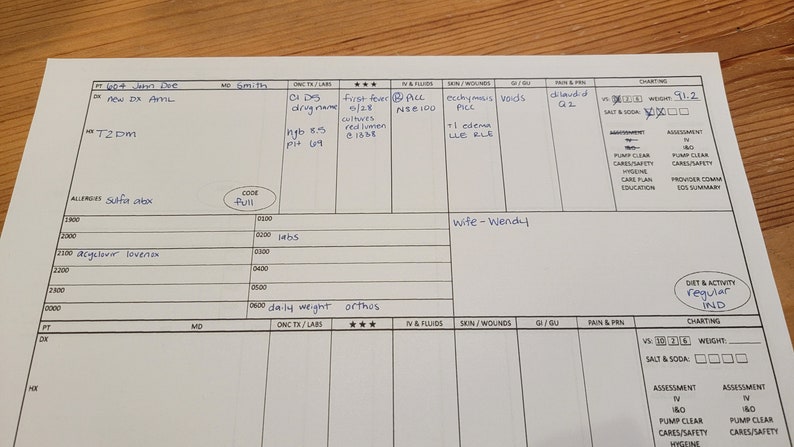 PT 604 John Doe MD Smith ONC TX / LABS ★★★ IV & FLUIDS SKIN / WOUNDS GI / GU PAIN & PRN CHARTING
DX new DX AML
HX T2DM
ALLERGIES sulfa abx
CODE
full
C1 D5
drug name
hgb 8.5
plt 69
first fever
5/28
cultures
red lumen
@ 1338
R PICC
NS @ 100
ecchymosis
PICC
+1 edema
LLE RLE
voids
dilaudid
Q2
VS: 10 2 6 WEIGHT: 91.2
SALT & SODA:
ASSESSMENT ASSESSMENT
IV IV
I&O I&O
PUMP CLEAR PUMP CLEAR
CARES/SAFETY CARES/SAFETY
HYGEINE
CARE PLAN PROVIDER COMM
EDUCATION EOS SUMMARY
1900 0100
2000 0200 labs
2100 acyclovir lovenox 0300
2200 0400
2300 0500
0000 0600 daily weight orthos
Wife - Wendy
DIET & ACTIVITY
regular
IND
PT MD ONC TX / LABS ★★★ IV & FLUIDS SKIN / WOUNDS GI / GU PAIN & PRN CHARTING
DX
HX
VS: 10 2 6 WEIGHT:
SALT & SODA:
ASSESSMENT ASSESSMENT
IV IV
I&O I&O
PUMP CLEAR PUMP CLEAR
CARES/SAFETY CARES/SAFETY
HYGEINE